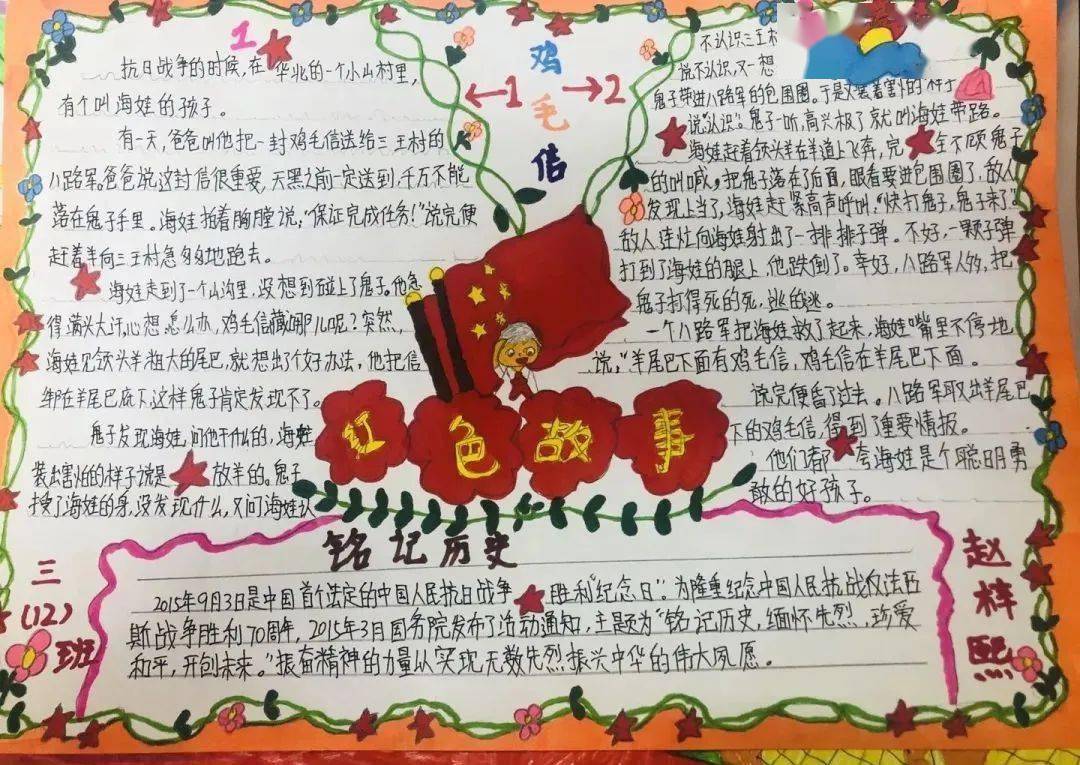 1
抗日战争的时候,在华北的一个小山村里,
有个叫海娃的孩子。
有一天,爸爸叫他把一封鸡毛信送给三王村的
八路军,爸爸说这封信很重要,天黑之前一定送到,千万不能
落在鬼子手里。海娃拍着胸膛说,“保证完成任务!”说完便
赶着羊向三王村急匆匆地跑去。
海娃走到了一个山沟里,没想到碰上了鬼子。他急
得满头大汗,心想,怎么办,鸡毛信藏哪儿呢?突然,
海娃见领头羊粗大的尾巴,就想出了个好办法,他把信
绑在羊尾巴底下,这样鬼子肯定发现不了。
鬼子发现海娃,问他干什么的,海娃
装出害怕的样子说是放羊的。鬼子
搜了海娃的身,没发现什么,又问海娃认
鸡毛信
←1 →2
不认识三王村
说不认识,又一想
鬼子带进八路军的包围圈。于是又装着害怕的样子
说“认识”。鬼子一听,高兴极了就叫海娃带路。
海娃赶着领头羊在羊道上飞奔,完全不顾鬼子
的叫喊。把鬼子落在了后面,眼看要进包围圈了,敌人
发现上当了,海娃赶紧高声呼叫,“快打鬼子,鬼子来了”
敌人连忙向海娃射出了一排排子弹。不好,一颗子弹
打到了海娃的腿上,他跌倒了。幸好,八路军人多,把
鬼子打得死的死,逃的逃。
一个八路军把海娃救了起来,海娃嘴里不停地
说,“羊尾巴下面有鸡毛信,鸡毛信在羊尾巴下面。
说完便昏了过去。八路军取出羊尾巴
下的鸡毛信,得到了重要情报。
他们都夸海娃是个聪明勇
敢的好孩子。
红色故事
铭记历史
2015年9月3日是中国首个法定的中国人民抗日战争胜利“纪念日”:为隆重纪念中国人民抗战反法西
斯战争胜利70周年,2015年3月国务院发布了活动通知,主题为“铭记历史,缅怀先烈,珍爱
和平,开创未来。”振奋精神的力量以实现无数先烈振兴中华的伟大夙愿。
三(12)班
赵梓熙